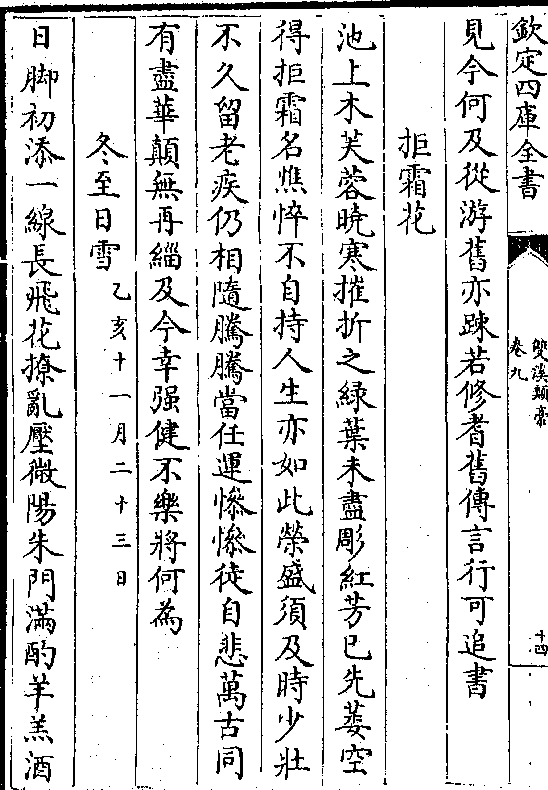 欽定四庫全書
雙溪類稾
卷九
十四
見今何及從游舊亦踈若修耆舊傳言行可追書
拒霜花
池上木芙蓉曉寒摧折之緑葉未盡彫紅芳已先萎空
得拒霜名憔悴不自持人生亦如此榮盛須及時少壯
不久留老疾仍相隨騰騰當任運慘慘徒自悲萬古同
有盡華顛無再緇及今幸强健不樂將何為
冬至日雪乙亥十一月二十三日
日脚初添一線長飛花撩亂壓微陽朱門滿酌羊羔酒